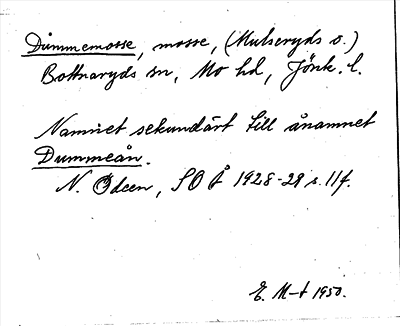 Dummemosse, mosse, (Mulseryds s.)
Bottnaryds sn, Mo hd, Jönk. l.
Namnet sekundärt till ånamnet
Dummeån.
N. Ödeen, SOÅ 1928-29 s. 11f.
E. M-t 1950.